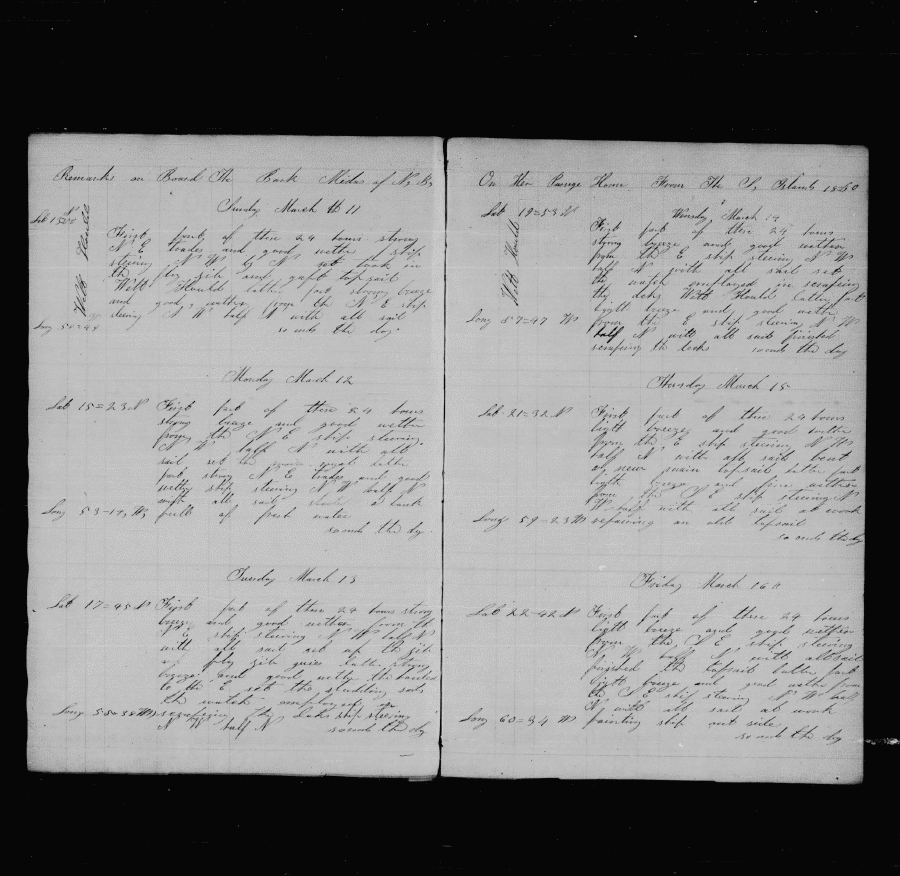 Remarks on Board The Bark Midas of N, B,
Sunday March th 11
Lat 15=00 N
First part of these 24 hours strong
N E trades and good wether ship
steering N W by N took in
the fley jib and gaft topsail
Will Hauld latter part strong breeze
and good wether from the N E ship
steering N W half N with all sail
Long 50=44 so ends the day
Monday March 12
Lat 15=23 N First part of these 24 hours
strong breeze and good wether
from the N E ship steering
N W half N with all
sail set the royal latter
part strong N E trades and good
wether ship steering N W half N
with all sail a cask
Long 53-14, W, full of fresh water
so ends the day
Tuesday March 13
Lat 17=45 N First part of these 24 hours strong
breeze and good wether from the
E ship steering N W half N
with all sail set up the jib
fley jib guies latter strong
breeze and good wether the hauled
to the E set the studding sails
the watch employed in
Long 55=38 W scraping the decks ship steering
N W half N so ends the day
On Her Passage Home From The S, Islands 1860
Lat 19=53 N Wensday March 14
First part of these 24 hours
strong breeze and good wether
from the E ship steering N W
half N with all sail set
the watch employed in scraping
the decks Will Hauld latter part
light breeze and good wether
Long 57=47 W from the E ship steering N W
half N with all sail finished
scraping the decks so ends the day
Thursday March 15
Lat 21=32 N First part of these 24 hours
light breezes and good wether
from the E ship steering N W
half N with all sail bent
a new main topsail latter part
light breeze and fine wether
from the S E ship steering N
W half with all sail at work
Long 59=23 W repairing an old topsail
so ends the day
Friday March 16
Lat 22=42 N First part of these 24 hours
light breeze and good wether
from the S E ship steering
N W half N with all sail
finished the topsail latter part
light breeze and good wether from
the S E ship steering N W half
N, with all sail at work
Long 60=34 W painting ship out side
so ends the day
Will Hauld
Will Hauld